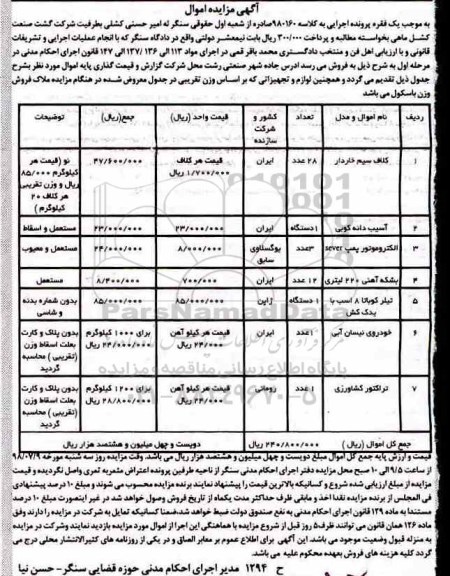 آگهی مزایده اموال
به موجب یک فقره پرونده اجرایی به کلاسه ۹۸۰۱۶۰ صادره از شعبه اول حقوقی سنگر له امیر حسنی کشلی بطرفیت شرکت گشت صنعت
کشل ماهی بخواسته مطالبه و پرداخت ۳۰۰/۰۰۰ ریال بابت نیمعشر دولتی واقع در دادگاه سنگر که با انجام عملیات اجرایی و تشریفات
قانونی و با ارزیابی اهل فن و منتخب دادگستری محمد باقر قمی در اجرای مواد ۱۱۳ الی ۱۳۶ /۱۳۷ الی ۱۴۷ قانون اجرای احکام مدنی در
مرحله اول به شرح ذیل به فروش می رسد ادرس جاده شهر صنعتی رشت محل شرکت گزارش و قیمت گذاری پایه اموال مورد نظر بشرح
جدول ذیل تقدیم می گردد و همچنین لوازم و تجهیزاتی که بر اساس وزن تقریبی در جدول معروض شده در هنگام مزایده ملاک فروش
وزن باسکول می باشد
ردیف نام اموال و مدل تعداد کشور و شرکت سازنده قیمت واحد (ریال) جمع(ریال) توضیحات
۱ کلاف سیم خاردار ۲۸ عدد ایران قیمت هر کلاف ۱/۷۰۰/۰۰۰ ریال ۴۷/۶۰۰/۰۰۰ نو (قیمت هر کیلوگرم ۸۵/۰۰۰ ریال و وزن تقریبی هر کلاف ۲۰ کیلوگرم)
۲ آسیب دانه کوبی ۱دستگاه ایران ۲۳/۰۰۰/۰۰۰ ۲۳/۰۰۰/۰۰۰ مستعمل و اسقاط
۳ الکتروموتور پمپ sever ۳عدد یوگسلاوی سابق ۸/۰۰۰/۰۰۰ ۲۴/۰۰۰/۰۰۰ مستعمل و معیوب
۴ بشکه آهنی ۲۲۰ لیتری ۱۲ عدد ایران ۷۰۰/۰۰۰ ۸/۴۰۰/۰۰۰ مستعمل
۵ تیلر کوباتا ۸ اسب با یدک کش ۱ دستگاه ژاپن ۸۵/۰۰۰/۰۰۰ ۸۵/۰۰۰/۰۰۰ بدون شماره بدنه و شاسی
۶ خودروی نیسان آبی ۱عدد ایران قیمت هر کیلو آهن ۲۴/۰۰۰ ریال برای ۱۰۰۰ کیلوگرم ۲۴/۰۰۰/۰۰۰ ریال بدون پلاک و کارت بعلت اسقاط وزن (تقریبی) محاسبه گردید
۷ تراکتور کشاورزی ۱ عدد رومانی قیمت هر کیلو آهن ۲۴/۰۰۰ ریال برای ۱۲۰۰ کیلوگرم ۲۸/۸۰۰/۰۰۰ ریال بدون پلاک و کارت بعلت اسقاط وزن (تقریبی) محاسبه گردید
جمع کل اموال (ریال) ۲۴۰/۸۰۰/۰۰۰ ریال دویست و چهل میلیون و هشتصد هزار ریال
قیمت و ارزش پایه جمع کل اموال مبلغ دویست و چهل میلیون و هشتصد هزار ریال می باشد. وقت مزایده روز سه شنبه مورخه ۹۸/۰۷/۹
از ساعت ۹/۵ الی ۱۰ صبح محل مزایده دفتر اجرای احکام مدنی سنگر از ناحیه طرفین پرونده اعتراض مثمربه ثمری واصل نگردیده و قیمت
مزایده از مبلغ ارزیابی شده شروع و کسانیکه بالاترین قیمت را پیشنهاد نمایند برنده مزایده محسوب می شوند و مبلغ ۱۰ درصد پیشنهادی
فی المجلس از برنده مزایده نقدا اخذ و مابقی ظرف حداکثر مدت یکماه از تاریخ فروش وصول خواهد شد در غیر اینصورت مبلغ ۱۰ درصد
مستندا به ماده ۱۲۹ قانون اجرای احکام مدنی به نفع صندوق دولت ضبط خواهد شد.ضمنا کسانیکه تمایل به شرکت در مزایده را دارند وفق
ماده ۱۲۶ همان قانون می توانند ظرف۵ روز قبل از شروع مزایده با هماهنگی این اجرا از اموال مورد مزایده بازدید نمایند وشرکت در مزایده
به منزله قبول وضعیت موجود می باشد. این آگهی برای اطلاع عموم بر معابر الصاق و در یکی از روزنامه های کثیرالانتشار محلی درج می
گردد کلیه هزینه های فروش بعهده محکوم علیه می باشد.
ح ۱۲۹۴ مدیر اجرای احکام مدنی حوزه قضایی سنگر- حسن نیا